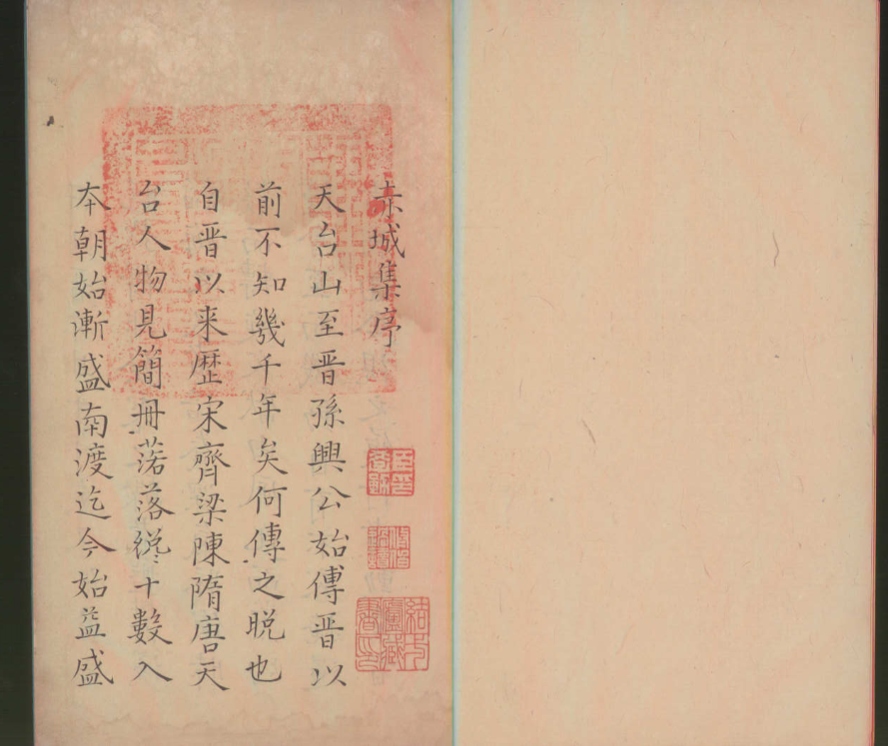 赤城集序
天台山至晋孫興公始傳晋以
前不知幾千年矣何傳之晚也
自晋以来歴宋齊梁陳隋唐天
台人物見簡冊落落纔十數入
本朝始漸盛南渡迄今始益盛